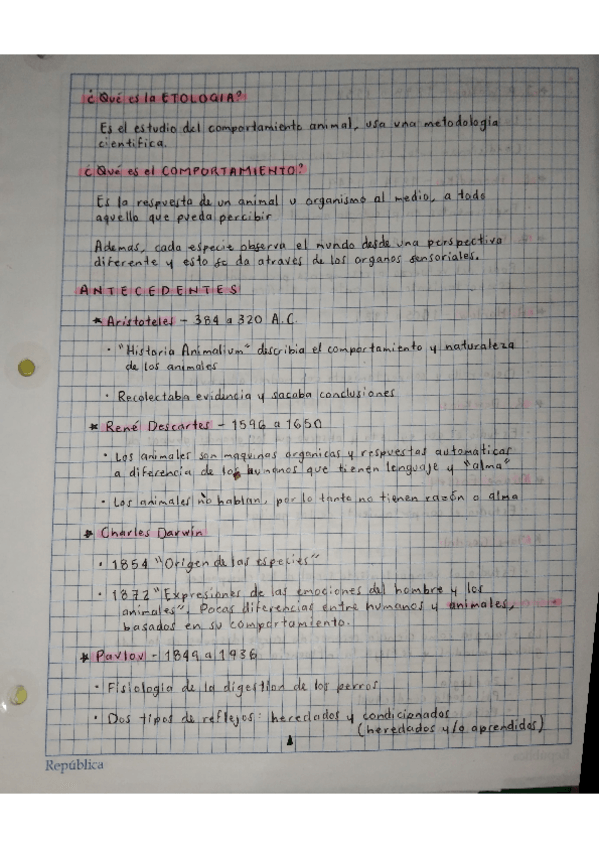 ¿Qué es la ETOLOGIA?
Es el estudio del comportamiento animal, usa una metodología
cientifica.
¿Qué es el COMPORTAMIENTO?
Es la respuesta de un animal u organismo al medio, a todo
aquello que pueda percibir
Ademas, cada especie observa el mundo desde una perspectiva
diferente y esto se da atraves de los organos sensoriales.
ANTECEDENTES
* Aristoteles - 384 a 320 A.C.
• "Historia Animalium" describia el comportamiento y naturaleza
de los animales
• Recolectaba evidencia y sacaba conclusiones
* René Descartes - 1596 a 1650
• Los animales son maquinas organicas y respuestas automaticas
a diferencia de los humanos que tienen lenguaje y "alma"
• Los animales no hablan, por lo tanto no tienen razón o alma
* Charles Darwin
• 1854 "Origen de las especies"
• 1872 "Expresiones de las emociones del hombre y los
animales". Pocas diferencias entre humanos y animales,
basados en su comportamiento.
* Pavlov - 1849 a 1936
• Fisiologia de la digestion de los perros
• Dos tipos de reflejos: heredados y condicionados
(heredados y/o aprendidos)
República